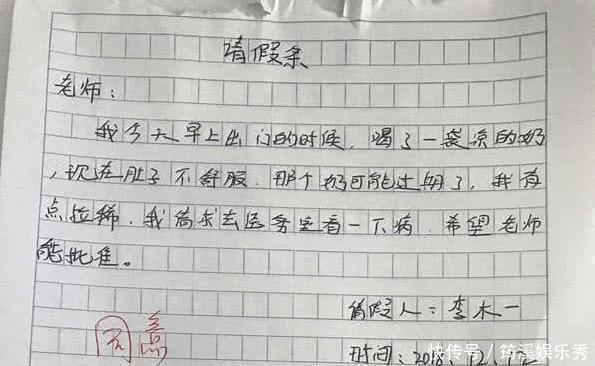 请假条
老师：
我今天早上出门的时候，喝了一袋凉的奶
，现在肚子不舒服．那个奶可能过期了，我有
点拉稀．我请求去医务室看一下病．希望老师
能批准。
请假人：李木一
同意
时间：2018.12.12
快传号／筠溪娱乐秀